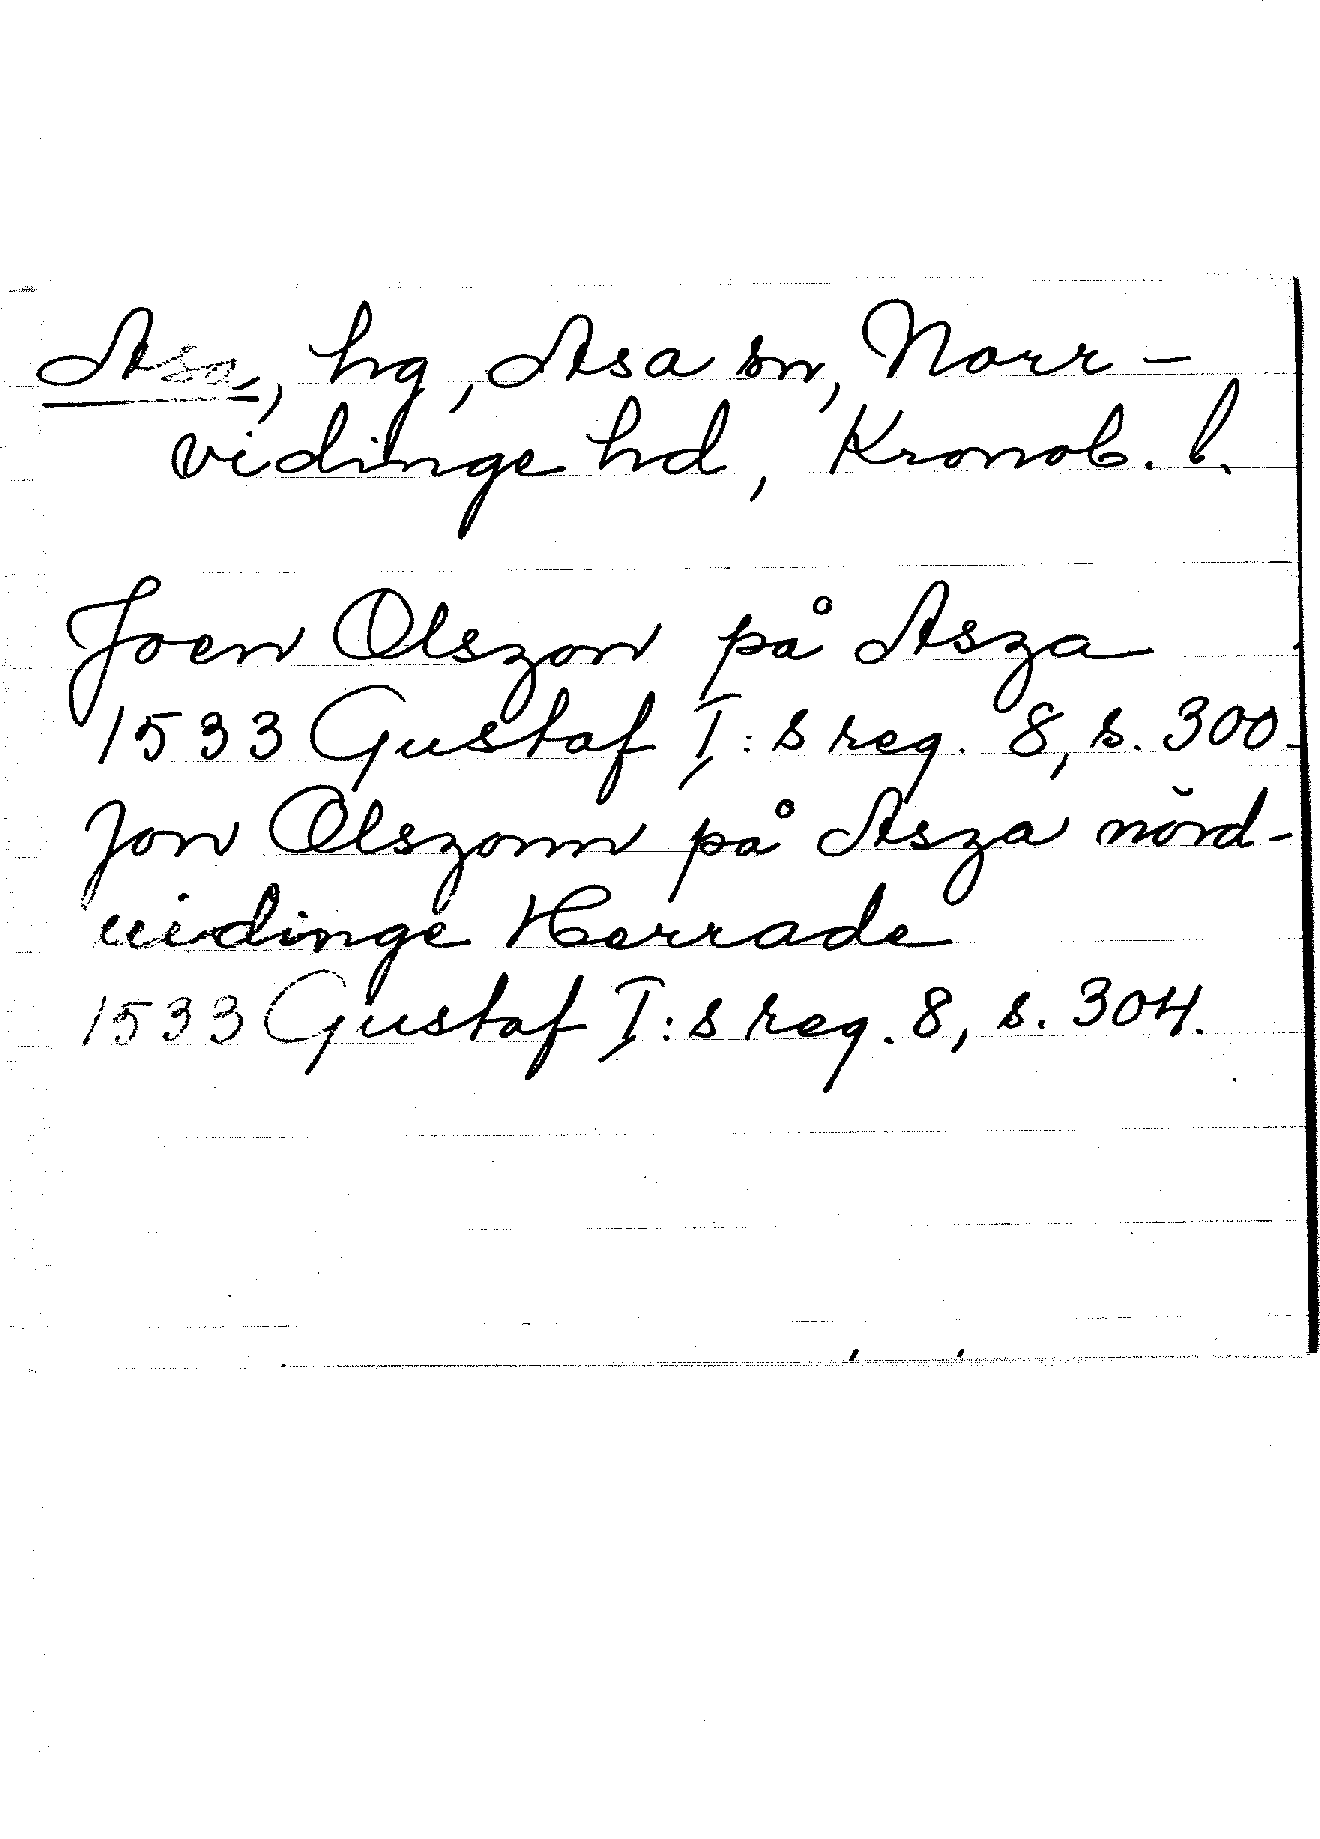 Asa, hg, Asa sn, Norr-
vidinge hd, Kronob. l.
Joen Olszon på Asza
1533 Gustaf I:s reg. 8, s. 300.
Jon Olszonn på Asza nörd-
uidinge Herrade
1533 Gustaf I:s reg. 8, s. 304.